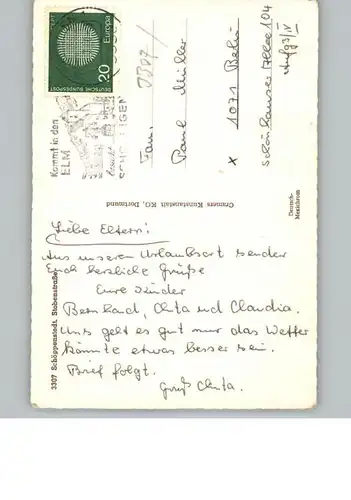 Europa
CEPT
20
DEUTSCHE BUNDESPOST
Kommt in den
ELM
3307/
Fam.
Paul Müller
x 1071 Berlin
Schönhauser Allee 104
Aufg 3/IV
Cramers Kunstanstalt KG, Dortmund
3307 Schöppenstedt, Stobenstraße
Liebe Eltern!
Aus unserem Urlaubsort senden
Euch herzliche Grüße
Eure Kinder
Bernhard, Anita und Claudia.
Uns geht es gut nur das Wetter
könnte etwas besser sein.
Brief folgt.
Gruß Anita.